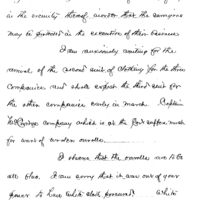 in the vicinity thereof, in order that the surveyors
may be protected in the execution of their business
I am anxiously waiting for the
arrival of the second suit of clothing for the three
companies and shall expect the third suit for
the other companies early in march. Captain
company which is at the Post suffers much
for want of woolen overalls.
I observe that the overalls are
all blue. I am sorry that it was out of your
power to have white cloth procured. White